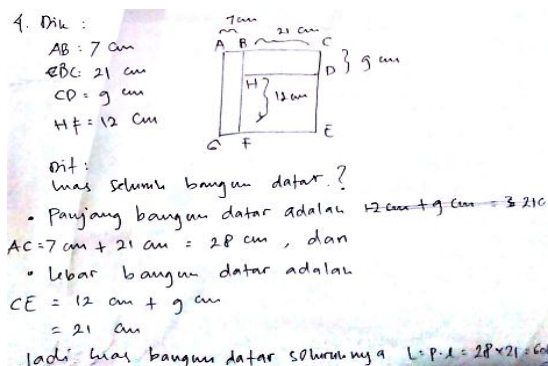 4. Dik :
AB : 7 cm
BC : 21 cm
CD = 9 cm
HF = 12 cm
7 cm
21 cm
A B C
D } 9 cm
H
12 cm
G F E
Dit :
luas seluruh bangun datar ?
• Panjang bangun datar adalah 12 cm + 9 cm = 21c
AC = 7 cm + 21 cm = 28 cm , dan
• Lebar bangun datar adalah
CE = 12 cm + 9 cm
= 21 cm
Jadi luas bangun datar seluruhnya L = p . l = 28 × 21 =